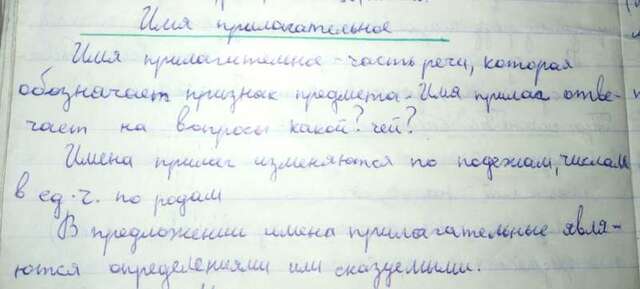 Имя прилагательное
Имя прилагительное - часть речи, которая
обозначает признак предмета. Имя прилаг отве-
чает на вопросы какой? чей?
Имена прилаг изменяются по подежам, числам
в ед. ч. по родам
В предложении имена прилагательные явля-
ются определениями или сказуемыми.